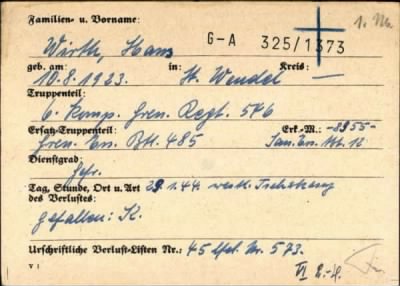 Familien- u. Vorname:
1. Mb.
Wirth, Hans
G-A 325/1373
geb. am: in: Kreis:
10.8.1923. St. Wendel —
Truppenteil:
6. Komp. Gren. Regt. 546
Ersatz-Truppenteil: Erk.-M.: -8955-
Gren. Ers. Btl. 485 San. Ers. Abt. 12
Dienstgrad:
Gefr.
Tag, Stunde, Ort u. Art 29.1.44 westl.
des Verlustes:
gefallen: K.
Urschriftliche Verlust-Listen Nr.: 45 lfd. Nr. 573.
V 1